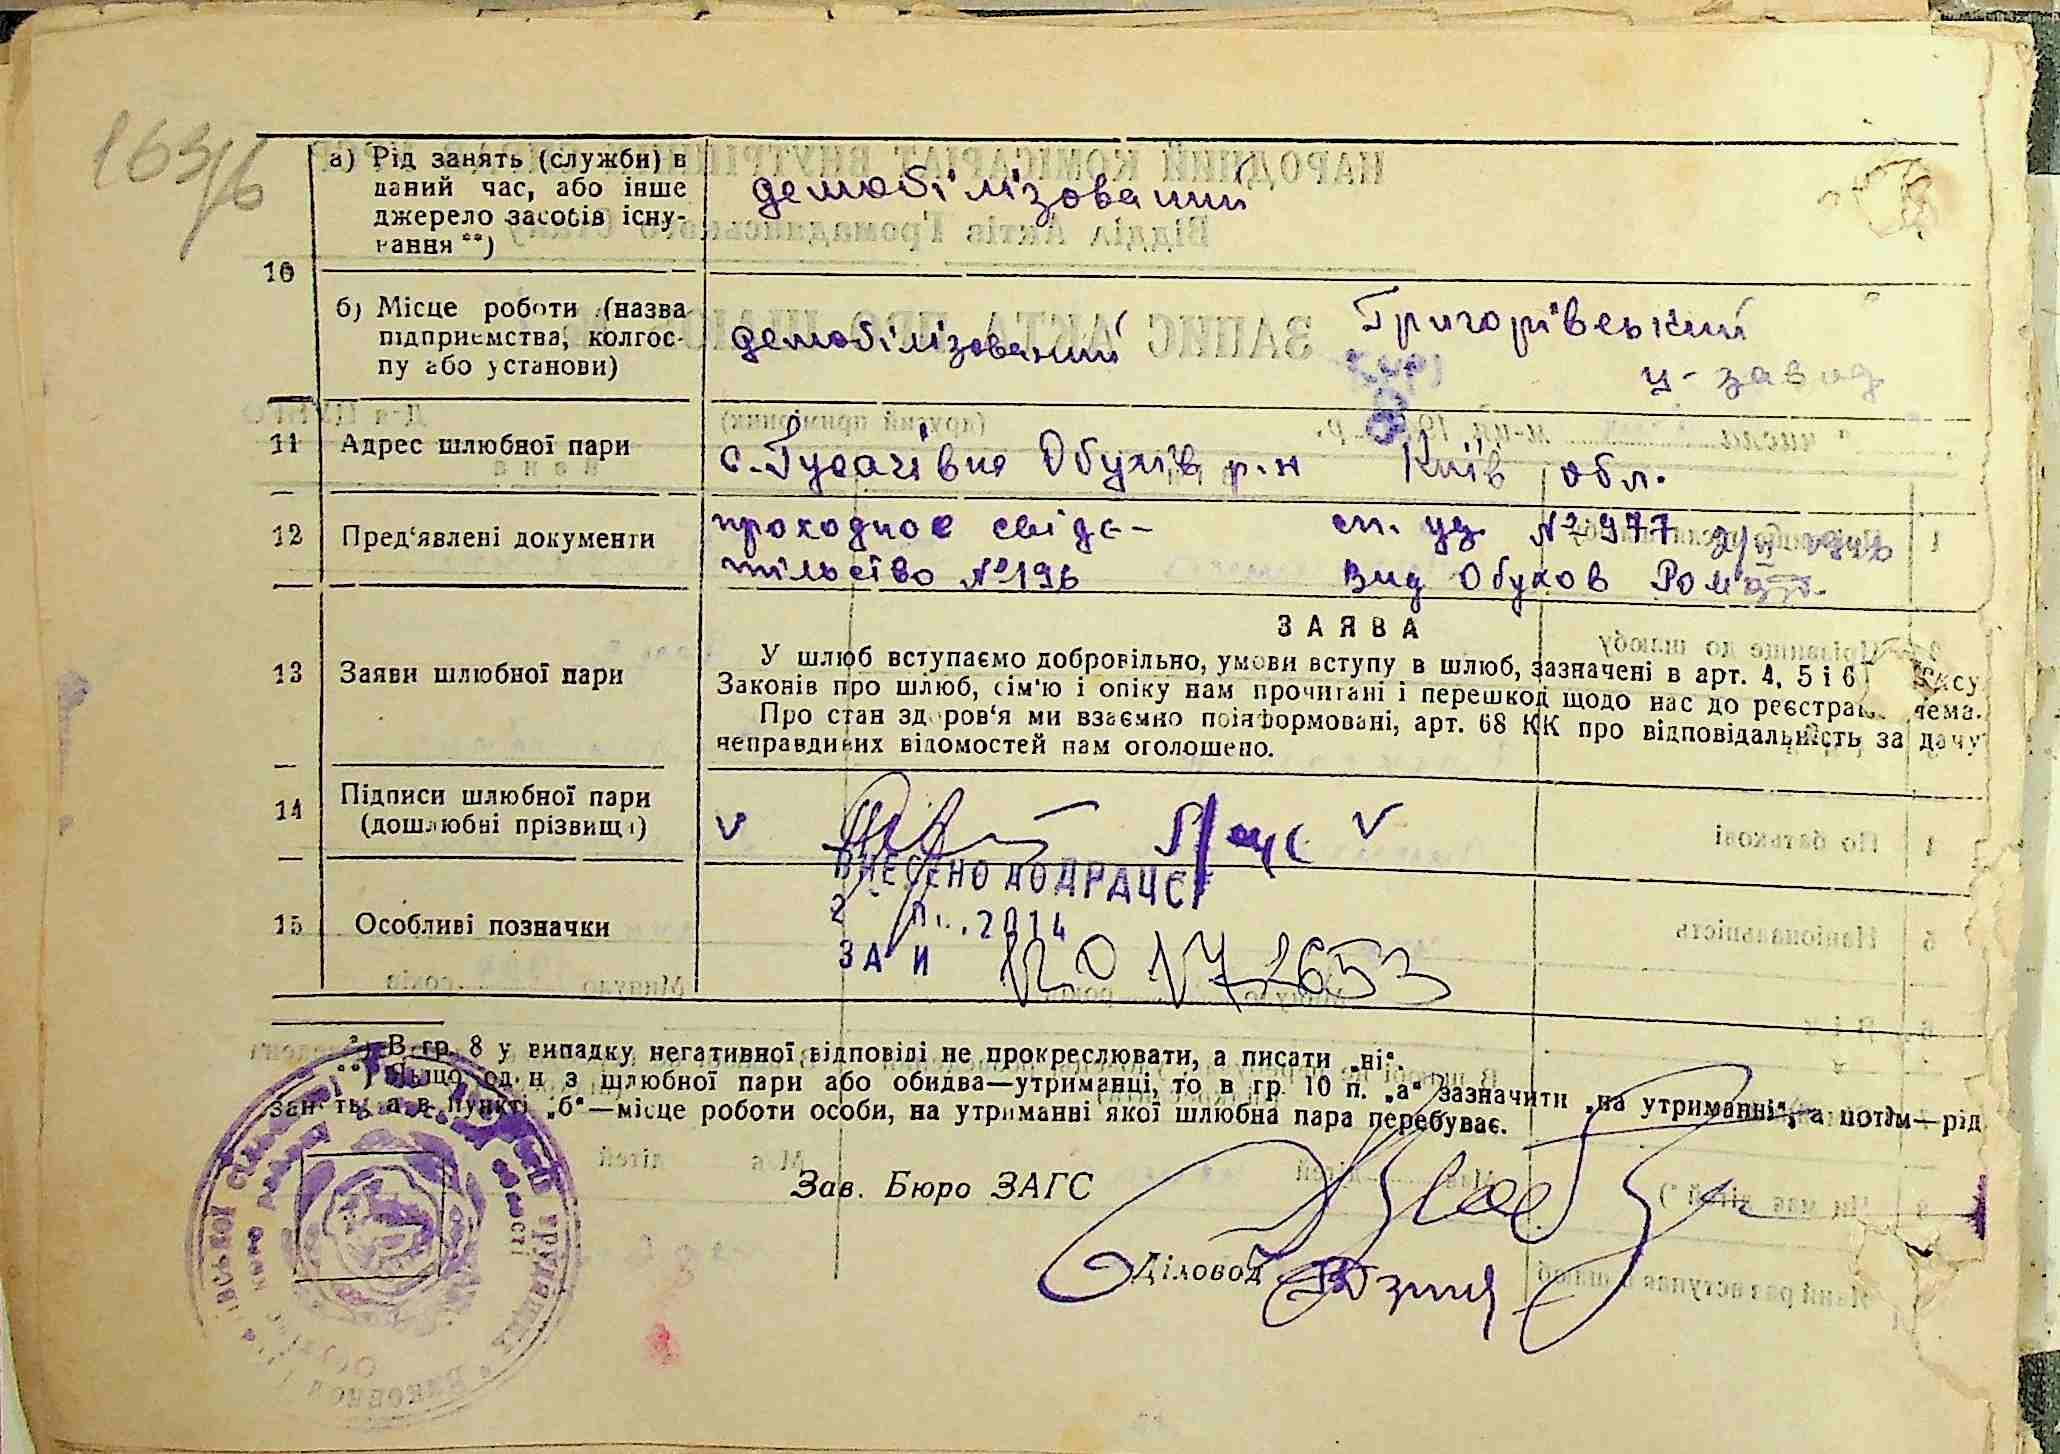 163/б
10
а) Рід занять (служби) в
даний час, або інше
джерело засобів існу-
вання **)
демобілізований
б) Місце роботи (назва
підприємства, колгос-
пу або установи)
демобілізований
Григорівський
ц-завод
11 Адрес шлюбної пари
с. Гусачівка Обухів р.н Київ обл.
12 Пред'явлені документи
проходное свіде-
тільство №196
сп. уд. №977
Вид Обухов
13 Заяви шлюбної пари
ЗАЯВА
У шлюб вступаємо добровільно, умови вступу в шлюб, зазначені в арт. 4, 5 і 6
Законів про шлюб, сім'ю і опіку нам прочитані і перешкод щодо нас до реєстрації нема.
Про стан здоров'я ми взаємно поінформовані, арт. 68 КК про відповідальність за дачу
неправдивих відомостей нам оголошено.
14 Підписи шлюбної пари
(дошлюбні прізвища)
V V
15 Особливі позначки
ВНЕСЕНО ДО ДРАЦС
2014
ЗА № 172653
*) В гр. 8 у випадку негативної відповіді не прокреслювати, а писати „ні“.
**) Якщо один з шлюбної пари або обидва—утриманці, то в гр. 10 п. „а“ зазначити „на утриманні“, а потім—рід
занять, а в пункті „б“—місце роботи особи, на утриманні якої шлюбна пара перебуває.
Зав. Бюро ЗАГС
Діловод